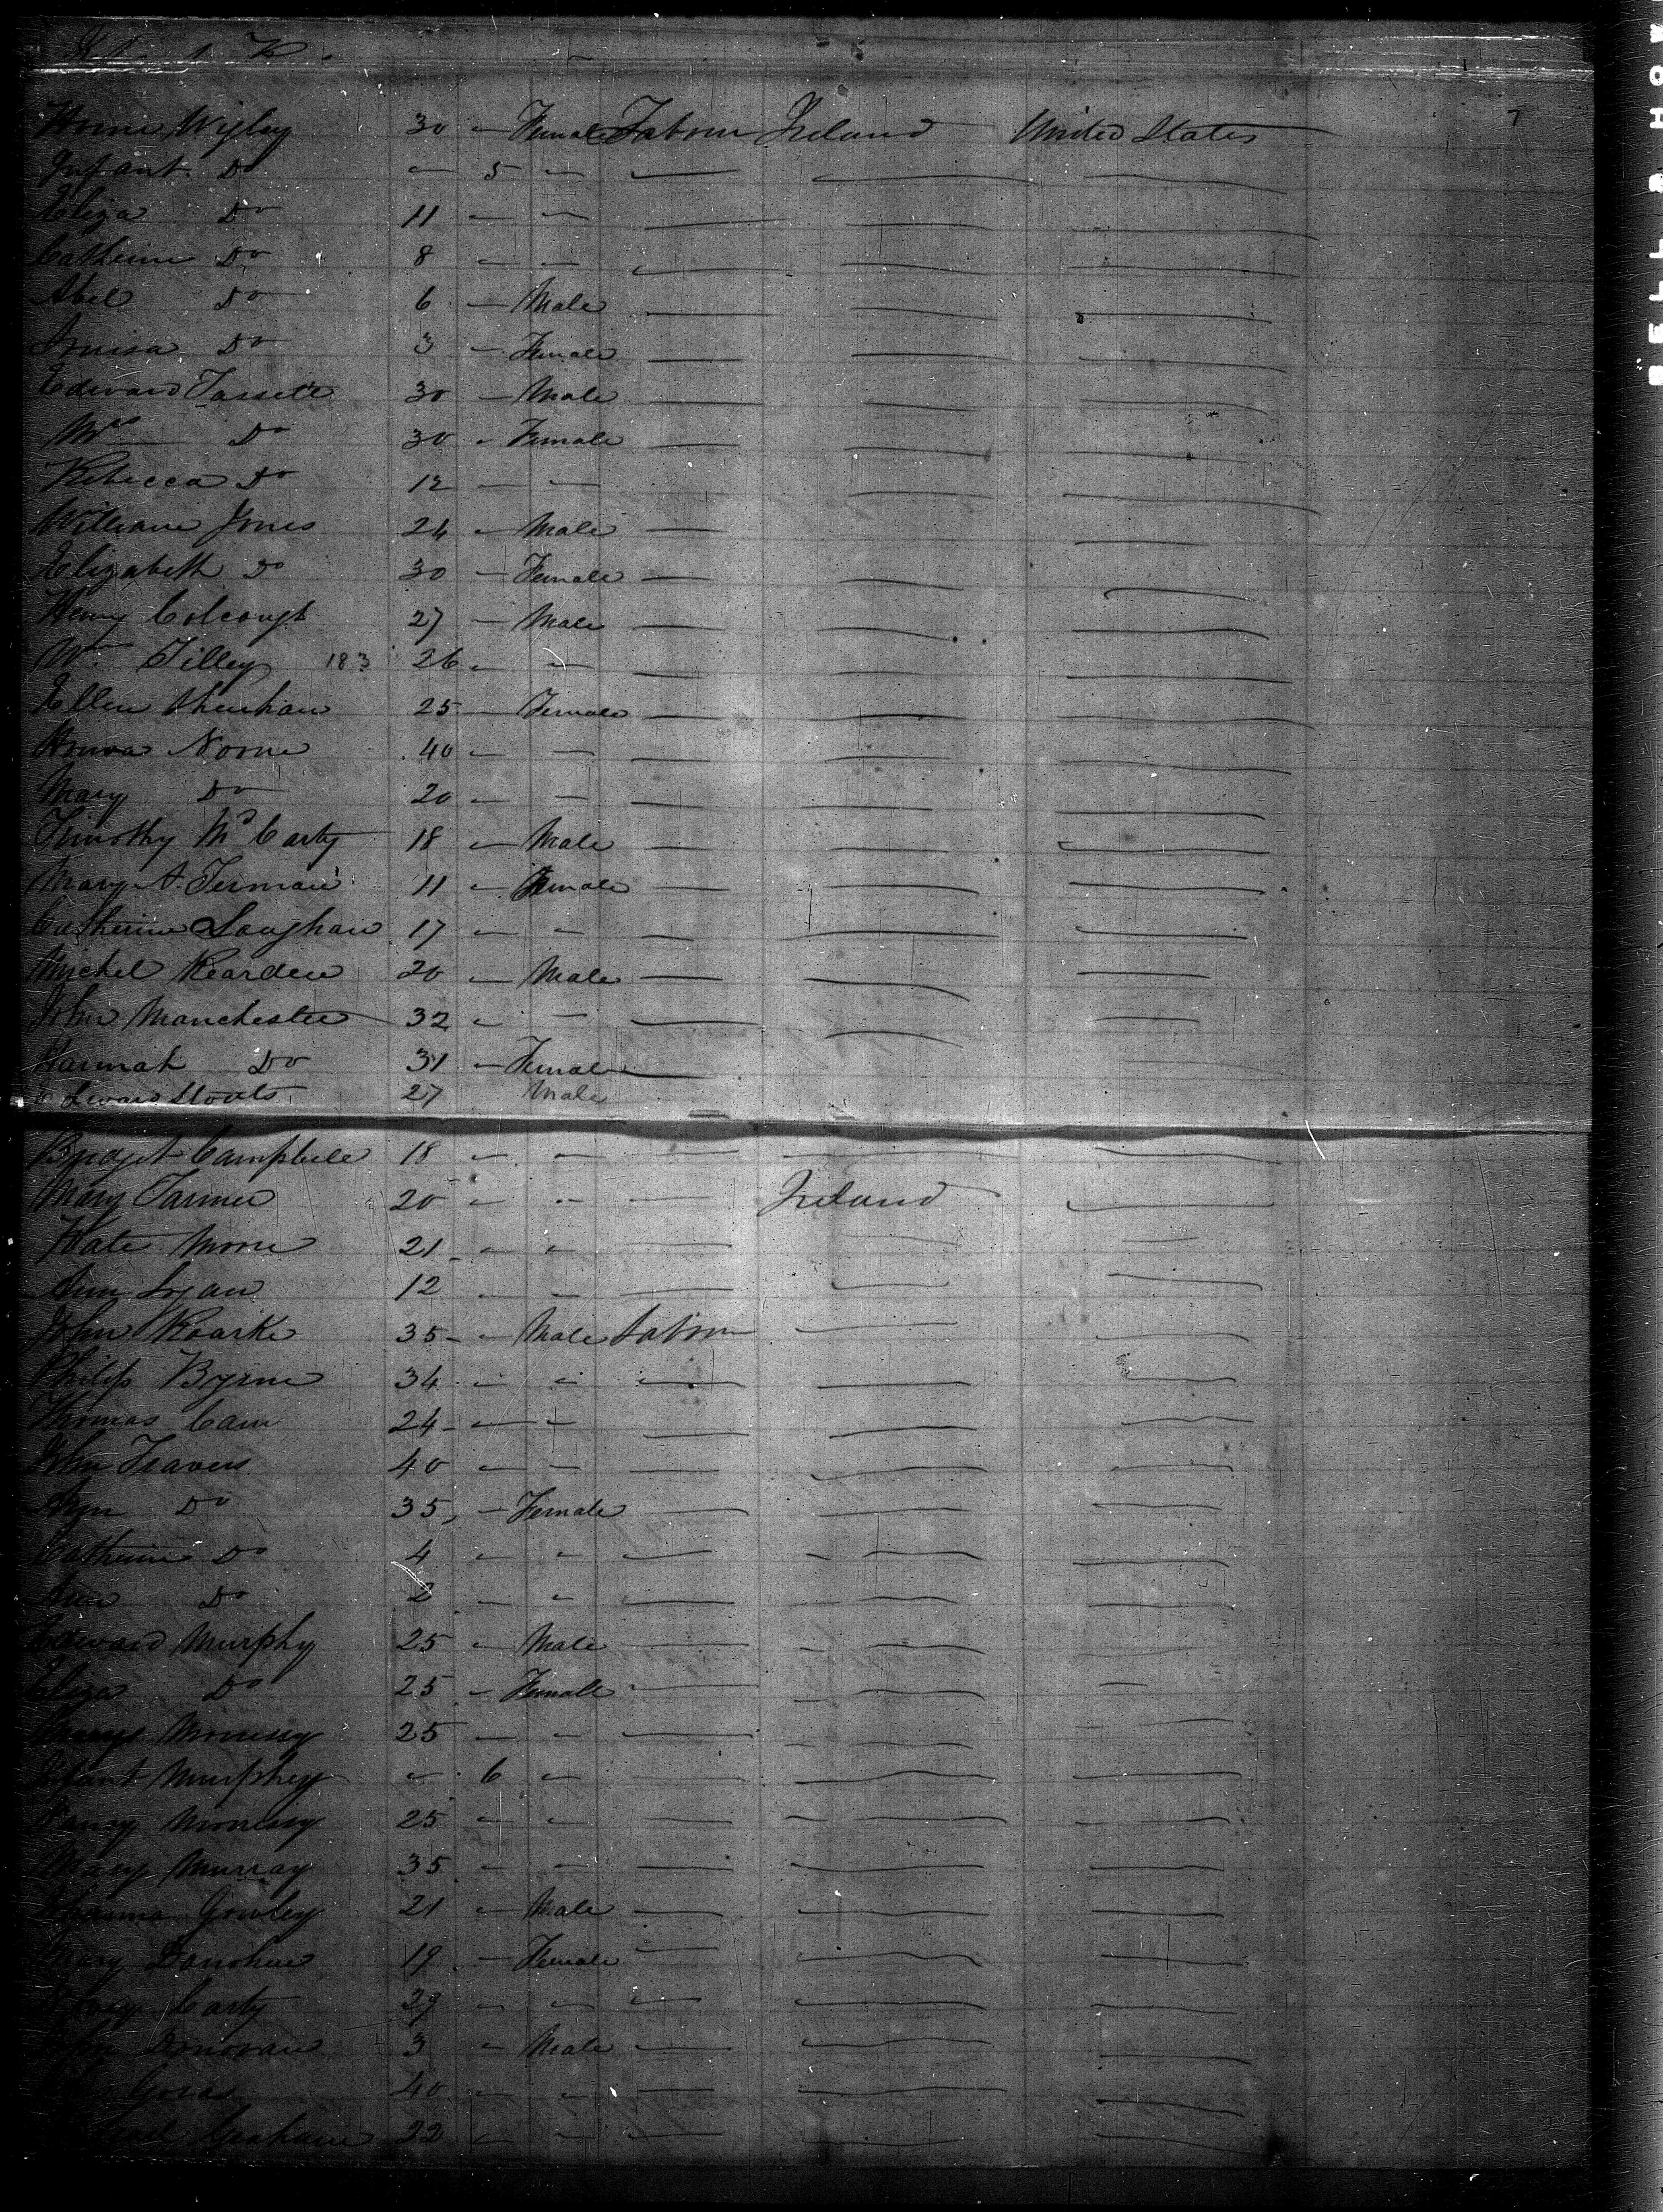 7
Wigley 30 " Female Labour Ireland United States
Infant Do " 5 "
Eliza Do 11 " "
Catherine Do 8 " "
Abel Do 6 " Male
Louisa Do 3 " Female
Edward Fassett 30 " Male
Mrs Do 30 " Female
Rebecca Do 12 " "
William Jones 24 " Male
Elizabeth Do 30 " Female
Henry Colcough 27 " Male
Wm Tilley 183 26 " "
Ellen 25 " Female
40 " "
Mary Do 20 " "
Timothy McCarty 18 " Male
Mary A. 11 " Female
Catherine Loughan 17 " "
Michel Rearden 20 " Male
John Manchester 32 " "
Hannah Do 31 " Female
Edward Stoats 27 Male
Bridget Campbell 18 " "
Mary Farmer 20 " " Ireland
Kate Moore 21 " "
Ann Logan 12 " "
John Roarke 35 " Male Labour
Philip Byrne 34 " "
Thomas Cain 24 " "
John Travers 40 " "
Ann Do 35 " Female
Catherine Do 4 " "
Ann Do 2 " "
Edward Murphy 25 " Male
Eliza Do 25 " Female
25 " "
Infant Murphey " 6 "
25 " "
Mary Murray 35 " "
Gowley 21 " Male
Mary Donohue 19 " Female
Carty 29 " "
John Donovan 3 " Male
40 " "
Graham 22 " "